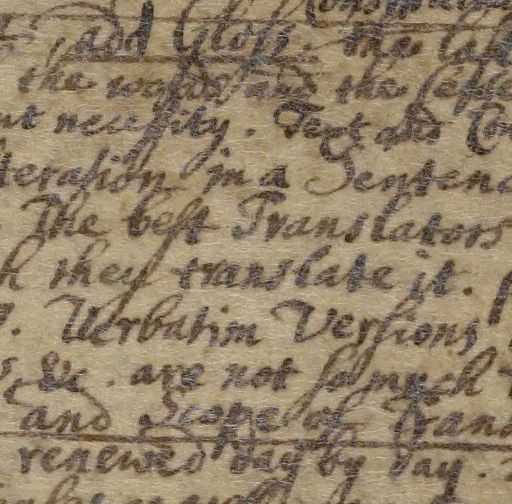 add Gloss. the
the words and the sense
necessity. Text and
alteration in a Sentence
The best Translators
they translate it.
Verbatim Versions
&c. are not so much
and Scope of
renewed day by day.